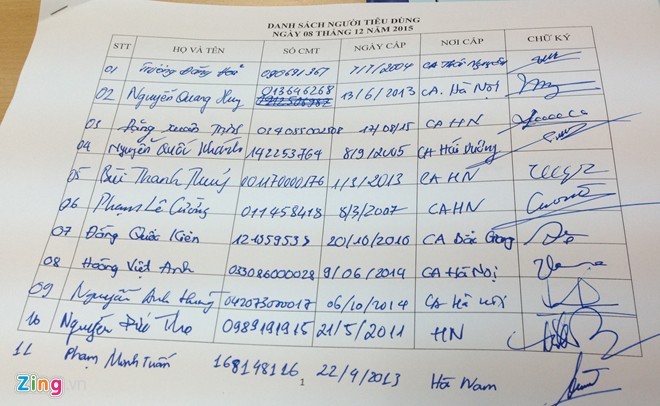 DANH SÁCH NGƯỜI TIÊU DÙNG
NGÀY 08 THÁNG 12 NĂM 2015
STT HỌ VÀ TÊN SỐ CMT NGÀY CẤP NƠI CẤP CHỮ KÝ
01 Trương Đăng 090691367 7/7/2004 CA Thái Nguyên
02 Nguyễn Quang Huy 013646268 13/6/2013 CA. Hà Nội
03 Đặng Xuân 17/08/15 CA HN
04 Nguyễn Quốc Khánh 142253764 8/9/2005 CA Hải Dương
05 Bùi Thanh Thuý 001170000176 1/3/2013 CA HN
06 Phạm Lê Cường 011458418 8/3/2007 CA HN
07 Đồng Quốc Kiên 20/10/2010 CA Bắc Giang
08 Hoàng Việt Anh 033086000028 9/06/2014 CA Hà Nội
09 Nguyễn Anh Hưng 042073000017 06/10/2014 CA Hà Nội
10 Nguyễn Đức Thọ 0989191915 21/5/2011 HN
11 Phạm Minh Tuấn 168148116 22/4/2013 Hà Nam
1
Zing.vn